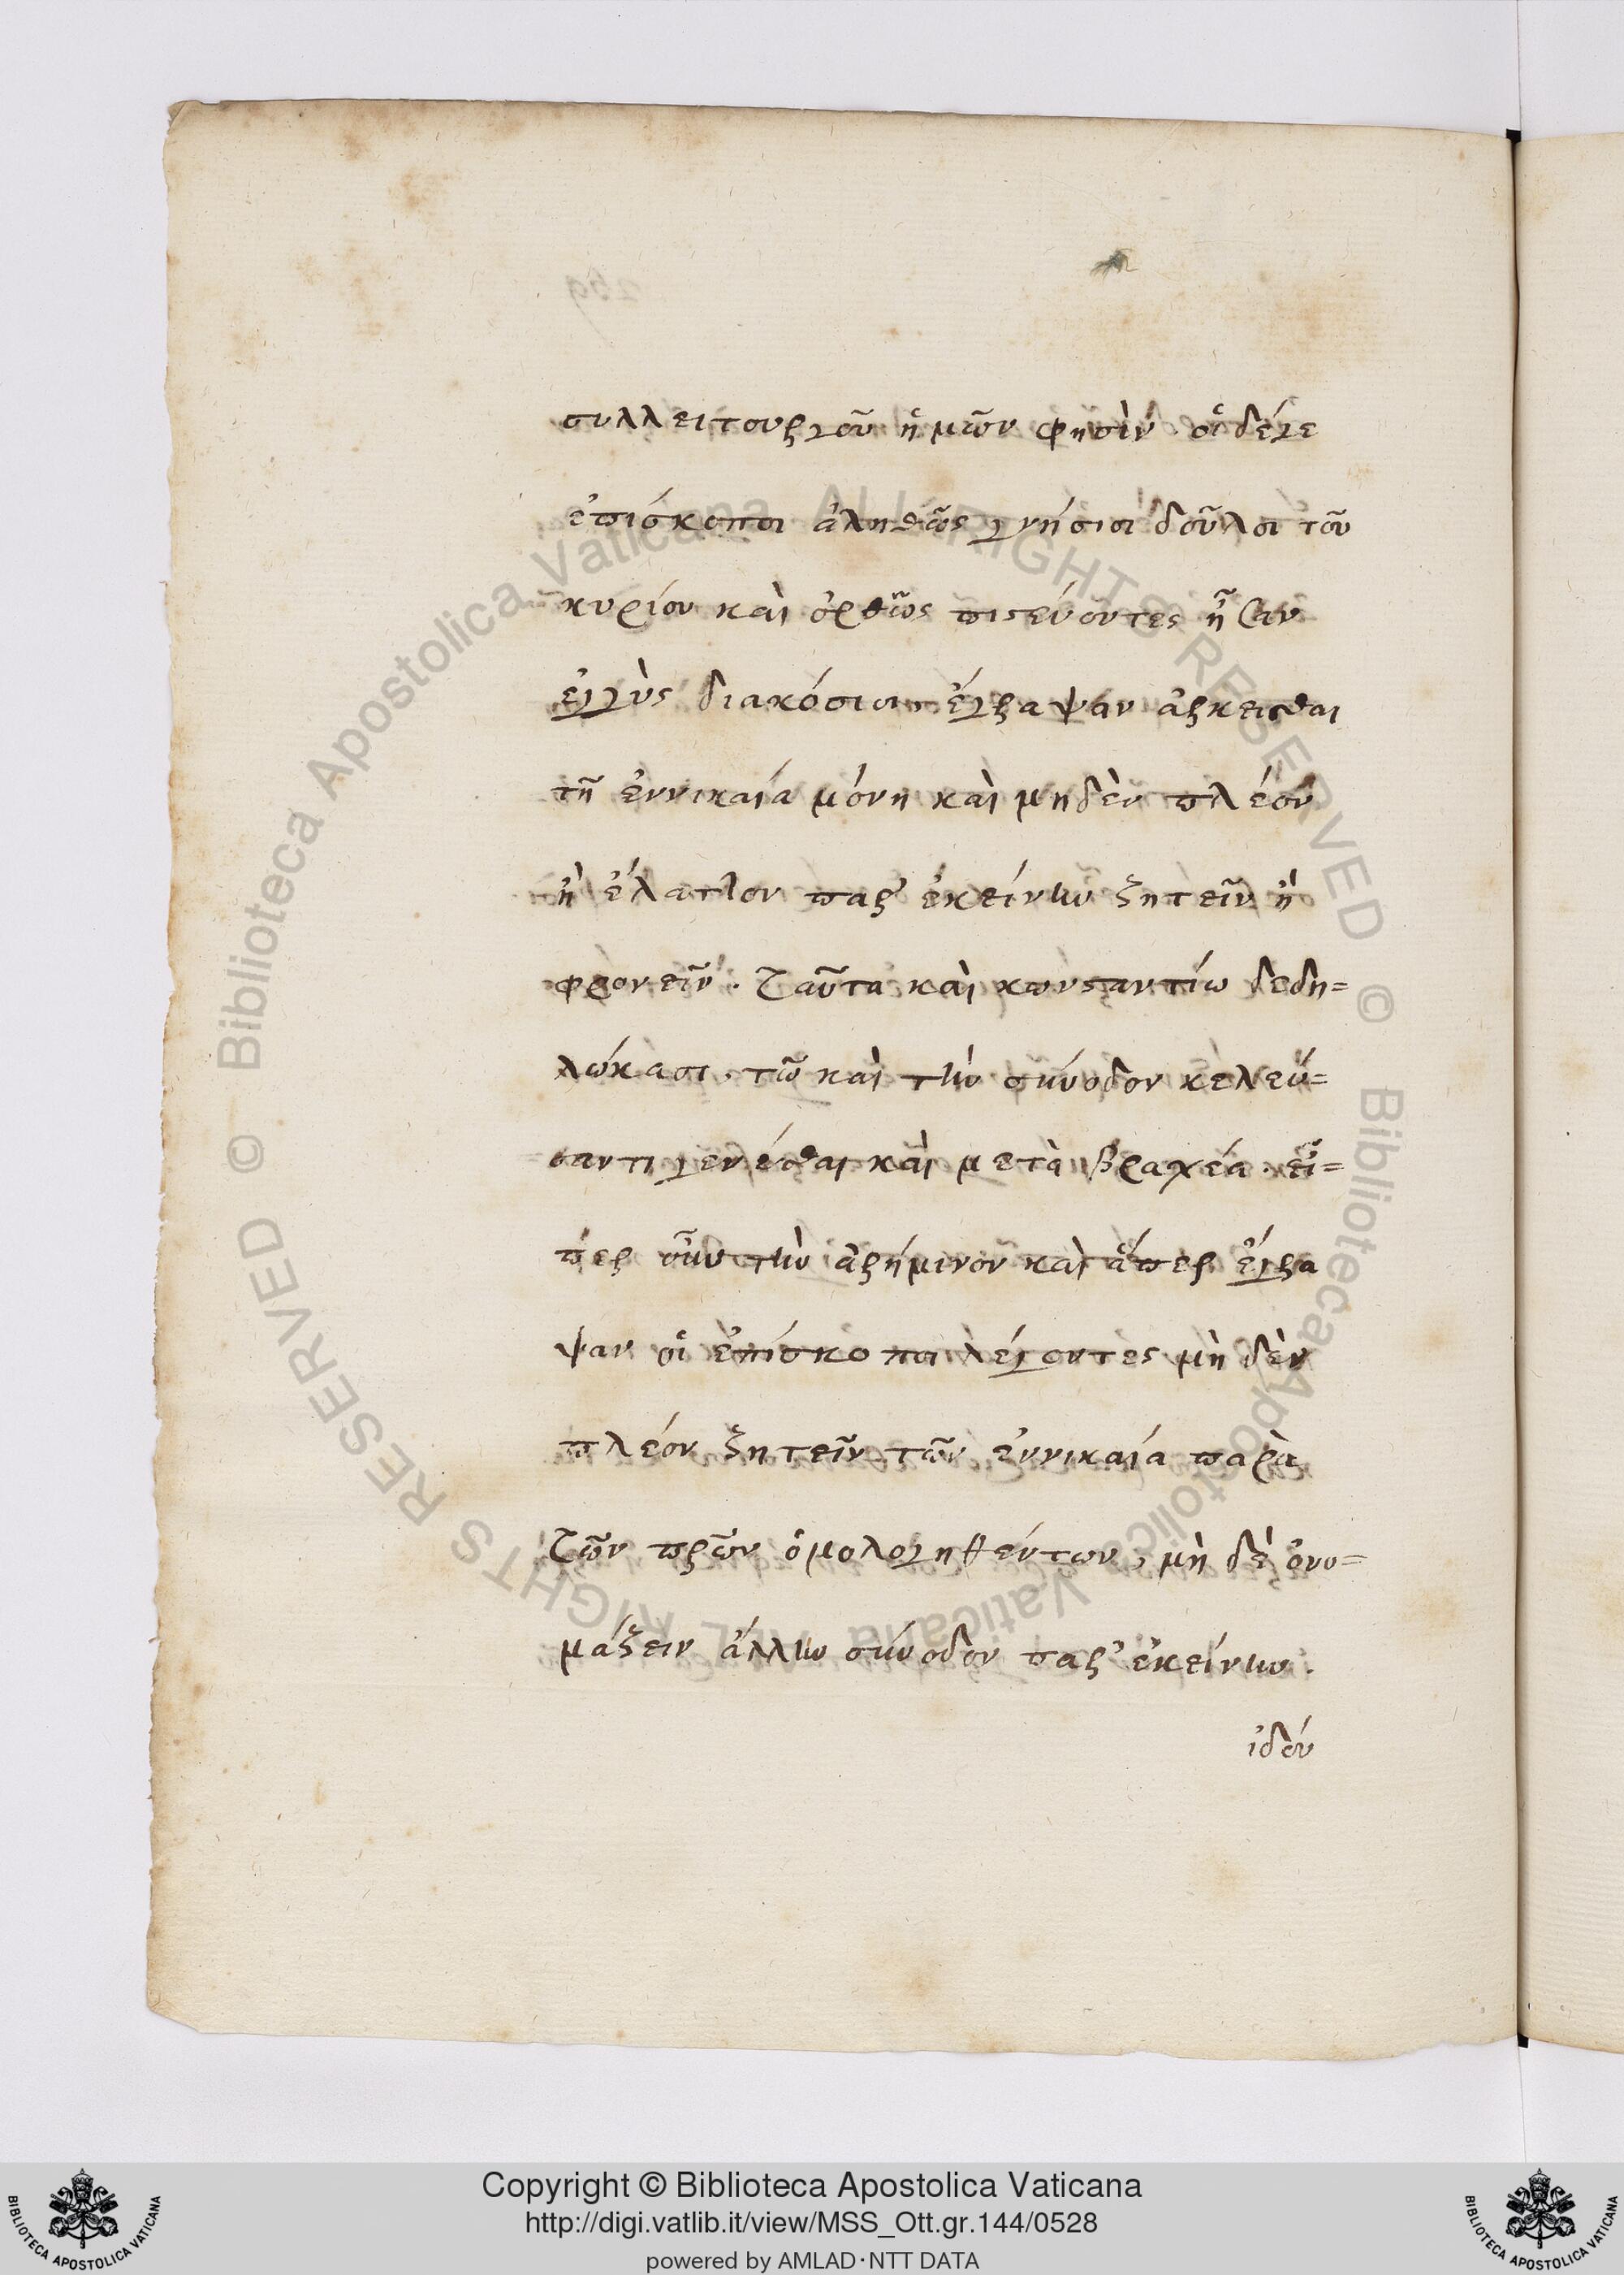 συλλειτουργοῦ ἡμῶν φησὶν. οἱ δέγε
ἐπισκοποι ἀληθῶς γνήσιοι δοῦλοι τοῦ
κυρίου καὶ ὀρθῶς πιστεύοντες ἦσαν
ἐγγὺς διακόσιοι. ἔγραψαν ἀρκεισθαι
τῆ ἐννικαία μόνη καὶ μηδὲν πλέον
ἢ ἔλαττον παρ' ἐκείνην ζητεῖν ἢ
φρονεῖν. ταῦτα καὶ κωνσταντίω δεδη=
λώκασι. τῶ καὶ τὴν σύνοδον κελεύ=
σαντι γενέσθαι καὶ μετὰ βραχέα. εἴ=
περ οὖν τὴν ἀρήμινον καὶ ἅπερ ἔγρα
ψαν οἱ ἐπίσκοποι λέγοντες μὴ δὲν
πλέον ζητεῖν τῶν ἐννικαία παρὰ
τῶν πρῶν ὁμολογηθέντων, μὴ δὲ ὀνο=
μάζειν ἄλλην σύνοδον παρ' ἐκείνην.
ἰδού
Copyright © Biblioteca Apostolica Vaticana
http://digi.vatlib.it/view/MSS_Ott.gr.144/0528
powered by AMLAD·NTT DATA
BIBLIOTECA APOSTOLICA VATICANA
BIBLIOTECA APOSTOLICA VATICANA
Biblioteca Apostolica Vaticana ALL RIGHTS RESERVED ©
Biblioteca Apostolica Vaticana ALL RIGHTS RESERVED ©